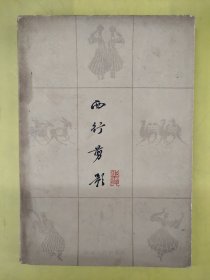 西行剪影